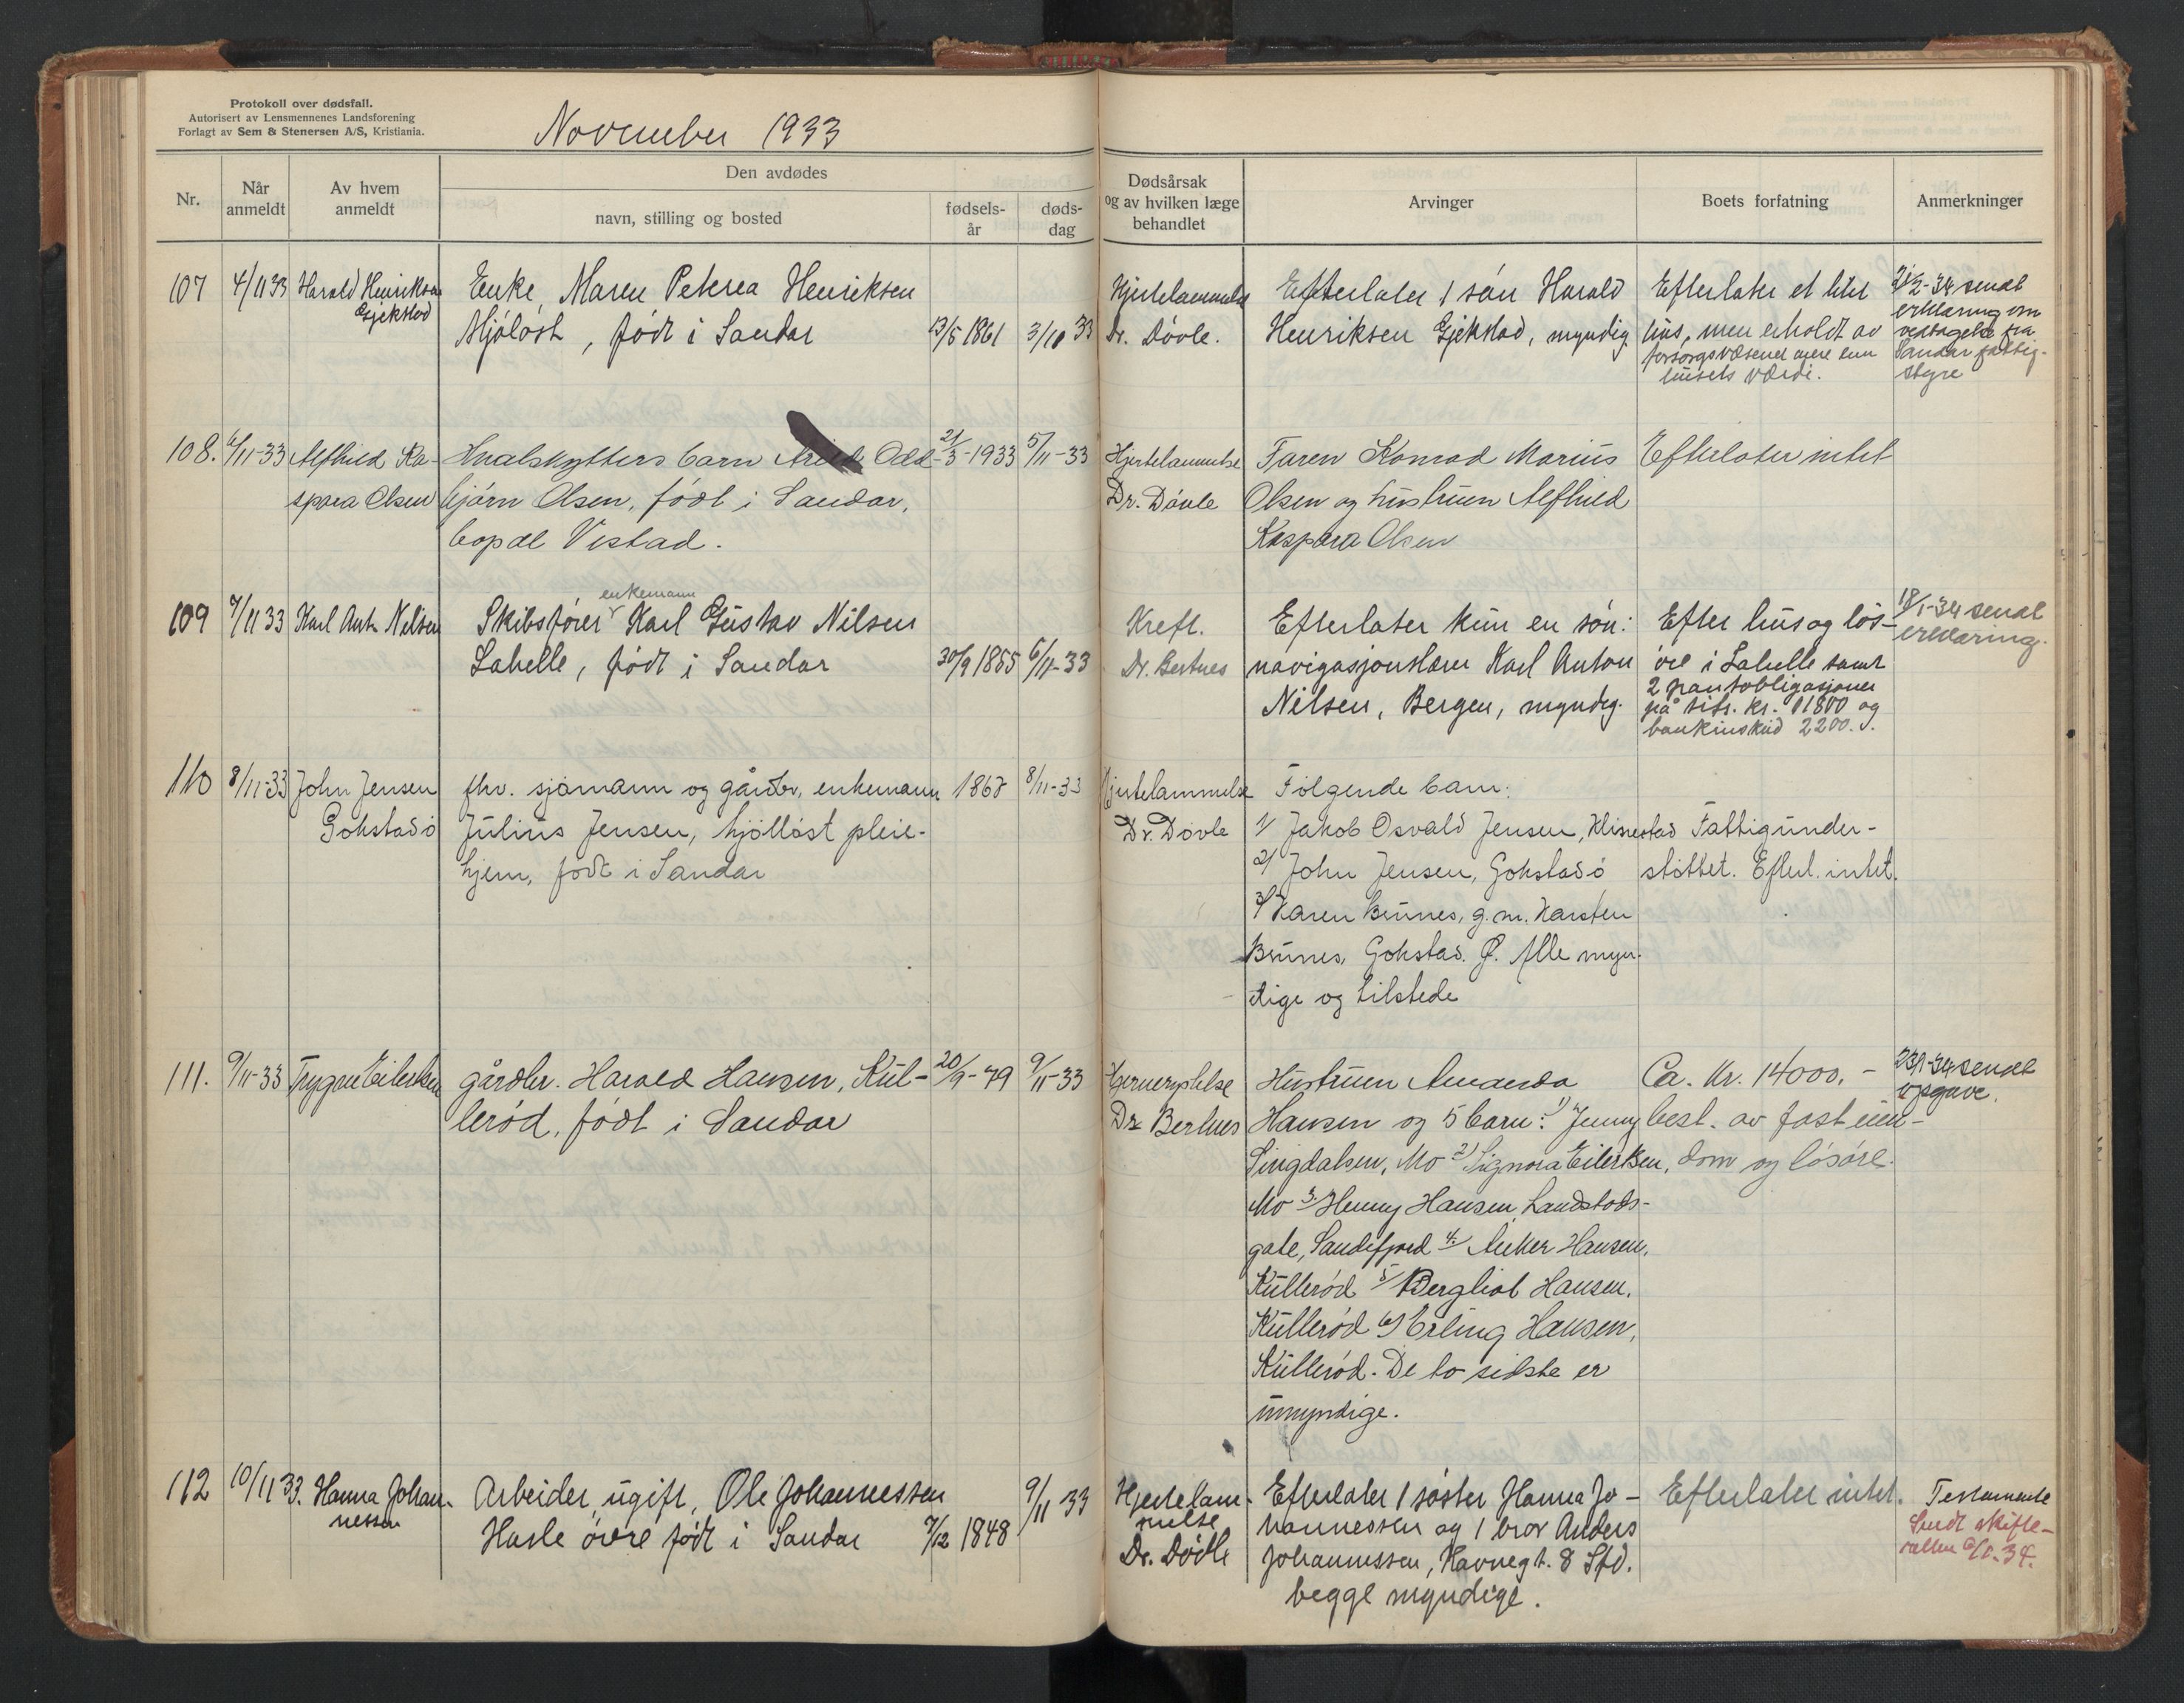 Protokoll over dødsfall.
Autorisert av Lensmennenes Landsforening
Forlagt av Sem & Stenersen A/S, Kristiania.
November 1933
Nr.
Når anmeldt
Av hvem anmeldt
Den avdødes
navn, stilling og bosted
fødsels-år
døds-dag
Dødsårsak og av hvilken læge behandlet
Arvinger
Boets forfatning
Anmerkninger
107 4/11 33 Harald Henriksen
Gjekstad
Enke, Maren Peterea Henriksen
Mjøløst, født i Sandar 13/5 1861 3/10 33
Hjertelammelse
Dr. Døvle.
Efterlater 1 søn Harald
Henriksen Gjekstad, myndig
Efterlater et litet
hus, men erholdt av
forsorgsvæsenet mere enn
husets værdi.
2/2-34 sendt
erklæring om
vedtagelse fra
Sandar fattig-
styre
108. 6/11-33 Alfhild Ka-
spara Olsen
Hvalskytters barn Odd-
bjørn Olsen, født i Sandar,
bopæl Vestad.
21/3-1933 5/11-33
Hjertelammelse
Dr. Døvle
Faren Konrad Marius
Olsen og hustruen Alfhild
Kaspara Olsen
Efterlater intet
109 7/11 33 Karl Ant. Nilsen
enkemann
Skibsfører Karl Gustav Nilsen
Lahelle, født i Sandar 30/9 1855 6/11-33
Kreft.
Dr. Bertnes
Efterlater kun en søn:
navigasjonslærer Karl Anton
Nilsen, Bergen, myndig.
Efter hus og løs-
øre i Lahelle samt
2 pantobligasjoner
på tils. kr. 11800 og
bankinskud 2200.
18/1-34 sendt
erklæring.
110 8/11-33 John Jensen
Gokstad ø
fhv. sjømann og gårdbr, enkemann 1868 8/11-33
Julius Jensen, hjølløst pleie-
hjem, født i Sandar
Hjertelammelse
Dr. Døvle
Følgende barn:
1/ Jakob Osvald Jensen, Klinestad
2/ John Jensen, Gokstad ø
3/ Karen Brunes, g.m. Karsten
Brunes, Gokstad. Ø. Alle myn-
dige og tilstede
Fattigunder-
støttet. Efterl. intet.
111. 9/11-33 Trygve Eilertsen
gårdbr. Harald Hansen, Kul-
lerød, født i Sandar
20/9-79 9/11-33
Hjernerystelse
Dr. Bertnes
Hustruen Amanda
Hansen og 5 barn: 1) Jenny
Lingdalsen, Mo 2) Signora Eilertsen,
Mo 3. Henny Hansen, Landstads-
gate, Sandefjord 4. Anker Hansen,
Kullerød 5/ Bergliot Hansen,
Kullerød 6) Erling Hansen,
Kullerød. De to sidste er
umyndige.
Ca. Kr. 14000.-
best. av fast eien-
dom og løsøre.
23/1-34 sendt
opgave.
112 10/11 33. Hanna Johan-
nessen
Arbeider, ugift, Ole Johannessen
Hasle øvre født i Sandar 7/12 1848
9/11 33
Hjertelam-
melse
Dr. Døvle
Efterlater 1 søster Hanna Jo-
hannessen og 1 bror Anders
Johannessen, Havnegt. 8 Sfd.
begge myndige.
Efterlater intet.
Testamente
Sendt skifte-
retten 34.